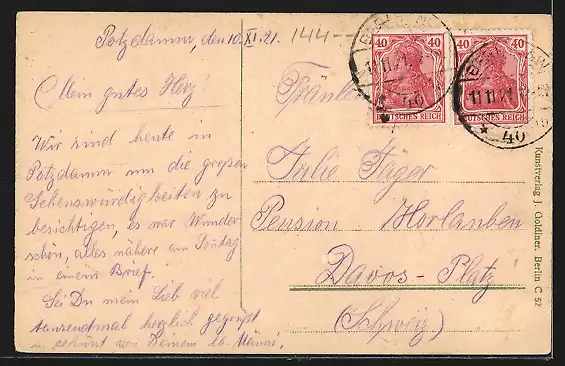 Potzdamm, den 10. XI. 21.
144
Mein gutes Herz
Wir sind heute in
Potzdamm um die großen
Sehenswürdigkeiten zu
besichtigen, es war Wunder
schön, alles nähere am Sontag
in einem Brief.
Sei Du mein Lieb viel
tausendmal herzlich gegrüßt
40 40
DEUTSCHES REICH
DEUTSCHES REICH
11.11.21
40
11.11.21
40
Fräulein
Julie Jäger
Pension Horlauben
Davos-Platz
(Schweiz)
Kunstverlag J. Goldiner. Berlin C. 52